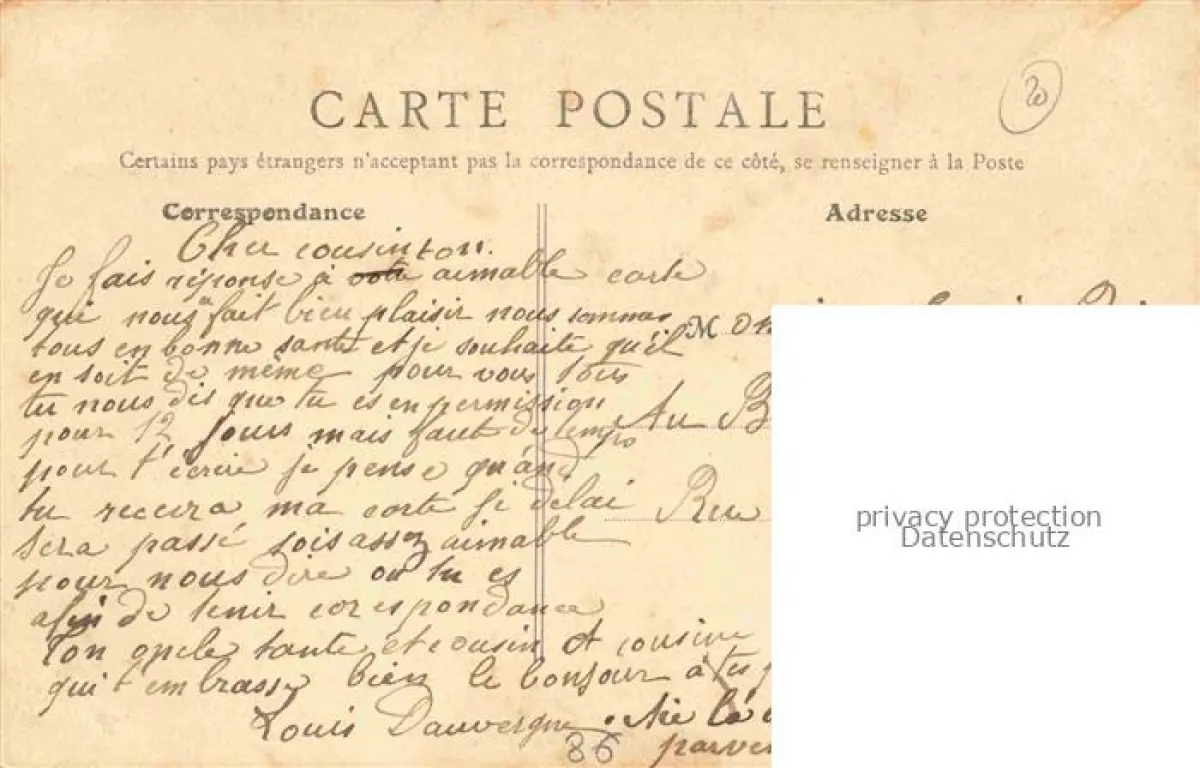 20
CARTE POSTALE
Certains pays étrangers n'acceptant pas la correspondance de ce côté, se renseigner à la Poste
Correspondance
Adresse
Cher cousin
Je fais réponse à aimable carte
qui nous a fait bien plaisir nous sommes
tous en bonne santé et je souhaite qu'il
en soit de même pour vous tous
tu nous dis que tu es en permission
pour 12 jours mais faut du temps
pour t'écrire je pense quand
tu recevra ma carte le délai
sera passé sois assez aimable
pour nous dire où tu es
afin de tenir correspondance
Ton oncle tante et cousin et cousine
qui t'embrasse bien le bonjour à tes
Louis Dauvergne
86
M
Au B
Rue
privacy protection
Datenschutz